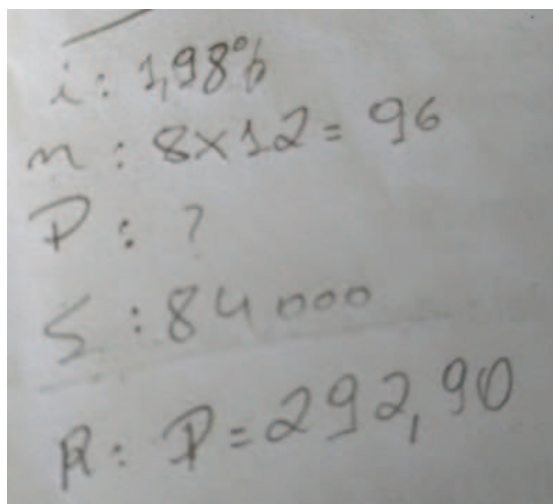 i: 1,98%
n: 8x12 = 96
P: ?
S: 84000
R: P = 292,90